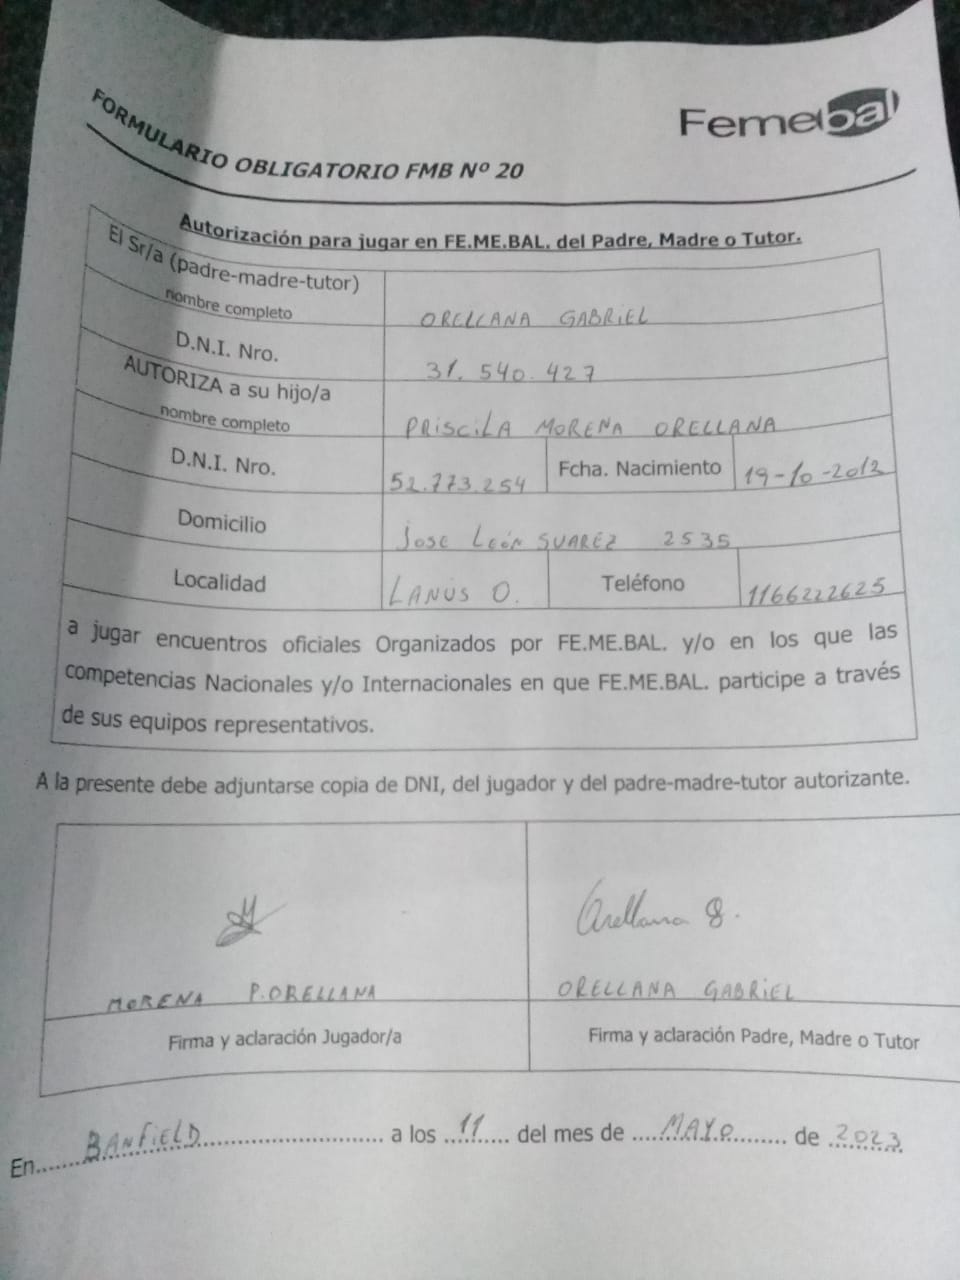 Femebal
FORMULARIO OBLIGATORIO FMB Nº 20
Autorización para jugar en FE.ME.BAL. del Padre, Madre o Tutor.
El Sr/a (padre-madre-tutor)
nombre completo
ORELLANA GABRIEL
D.N.I. Nro.
31.540.427
AUTORIZA a su hijo/a
nombre completo
PRISCILA MORENA ORELLANA
D.N.I. Nro.
52.773.254
Fcha. Nacimiento
19-10-2012
Domicilio
JOSE LEÓN SUAREZ 2535
Localidad
LANÚS O.
Teléfono
1166222625
a jugar encuentros oficiales Organizados por FE.ME.BAL. y/o en los que las
competencias Nacionales y/o Internacionales en que FE.ME.BAL. participe a través
de sus equipos representativos.
A la presente debe adjuntarse copia de DNI, del jugador y del padre-madre-tutor autorizante.
Orellana G.
MORENA P. ORELLANA
ORELLANA GABRIEL
Firma y aclaración Jugador/a
Firma y aclaración Padre, Madre o Tutor
En BANFIELD a los 11 del mes de MAYO de 2023